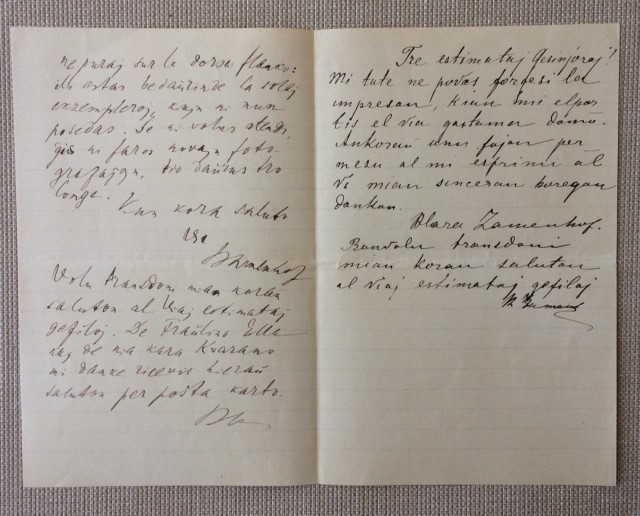 ne puraj sur la dorsa flanko:
ili estas bedaŭrinde la solaj
ekzempleroj, kiujn ni nun
posedas. Se ni volus atendi,
ĝis ni faros novajn foto-
grafaĵojn, tio daŭrus tro
longe.
Kun kora saluto
Via
Volu transdoni mian koran
saluton al Viaj estimataj
gefiloj. De Fraŭlino Elle
kaj de mia kara Kvarano
mi danke ricevis hieraŭ
saluton per poŝta karto.
Tre estimataj Gesinjoroj!
Mi tute ne povas forgesi la
impreson, kian mi elpor
tis el Via gastama domo.
Ankoraŭ unu fojon per
mesu al mi esprimi al
Vi mian sinceran koregan
dankon.
Klara Zamenhof.
Bonvolu transdoni
mian koran saluton
al Viaj estimataj gefiloj